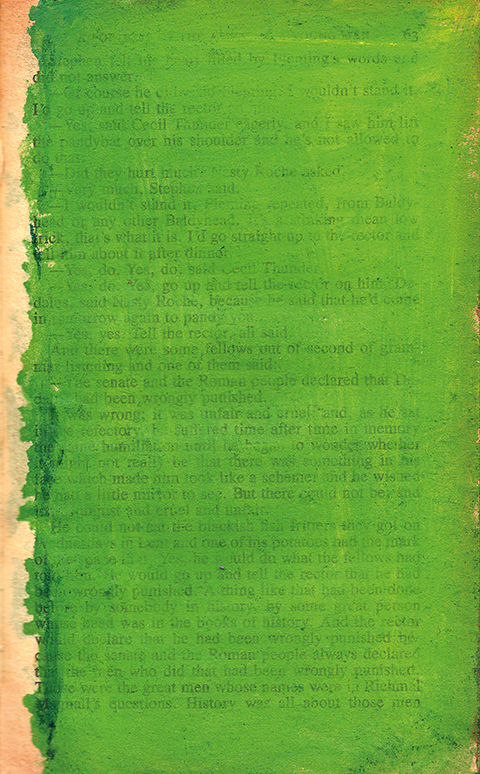 A PORTRAIT OF THE ARTIST AS A YOUNG MAN 63
Stephen felt his heart filled by Fleming's words and
did not answer.
—Of course he
I wouldn't stand it.
I'd go up and tell the rector
—Yes, said Cecil Thunder eagerly, and I saw him lift
the pandybat over his shoulder and he's not allowed to
do that.
—Did they hurt much? Nasty Roche asked.
—Very much, Stephen said.
—I wouldn't stand it, Fleming repeated, from Baldy-
head or any other Baldyhead. It's a stinking mean low
trick, that's what it is. I'd go straight up to the rector and
tell him about it after dinner.
—Yes, do. Yes, do, said Cecil Thunder.
—Yes, do. Yes, go up and tell the rector on him, De-
dalus, said Nasty Roche, because he said that he'd come
in tomorrow again to pandy you.
—Yes, yes. Tell the rector, all said.
And there were some fellows out of second of gram-
mar listening and one of them said:
—The senate and the Roman people declared that De-
dalus had been wrongly punished.
It was wrong; it was unfair and cruel; and, as he sat
in the refectory, he suffered time after time in memory
the same humiliation until he began to wonder whether
it might not really be that there was something in his
face which made him look like a schemer and he wished
he had a little mirror to see. But there could not be; and
it was unjust and cruel and unfair.
He could not eat the blackish fish fritters they got on
Wednesdays in Lent and one of his potatoes had the mark
of the spade in it. Yes, he would do what the fellows had
told him. He would go up and tell the rector that he had
been wrongly punished. A thing like that had been done
before by somebody in history, by some great person
whose head was in the books of history. And the rector
would declare that he had been wrongly punished be-
cause the senate and the Roman people always declared
that the men who did that had been wrongly punished.
Those were the great men whose names were in Richmal
Magnall's questions. History was all about those men